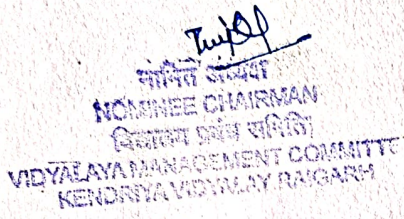 नामित अध्यक्ष
NOMINEE CHAIRMAN
विद्यालय प्रबंध समिति
VIDYALAYA MANAGEMENT COMMITTE
KENDRIYA VIDYALAY RAIGARH